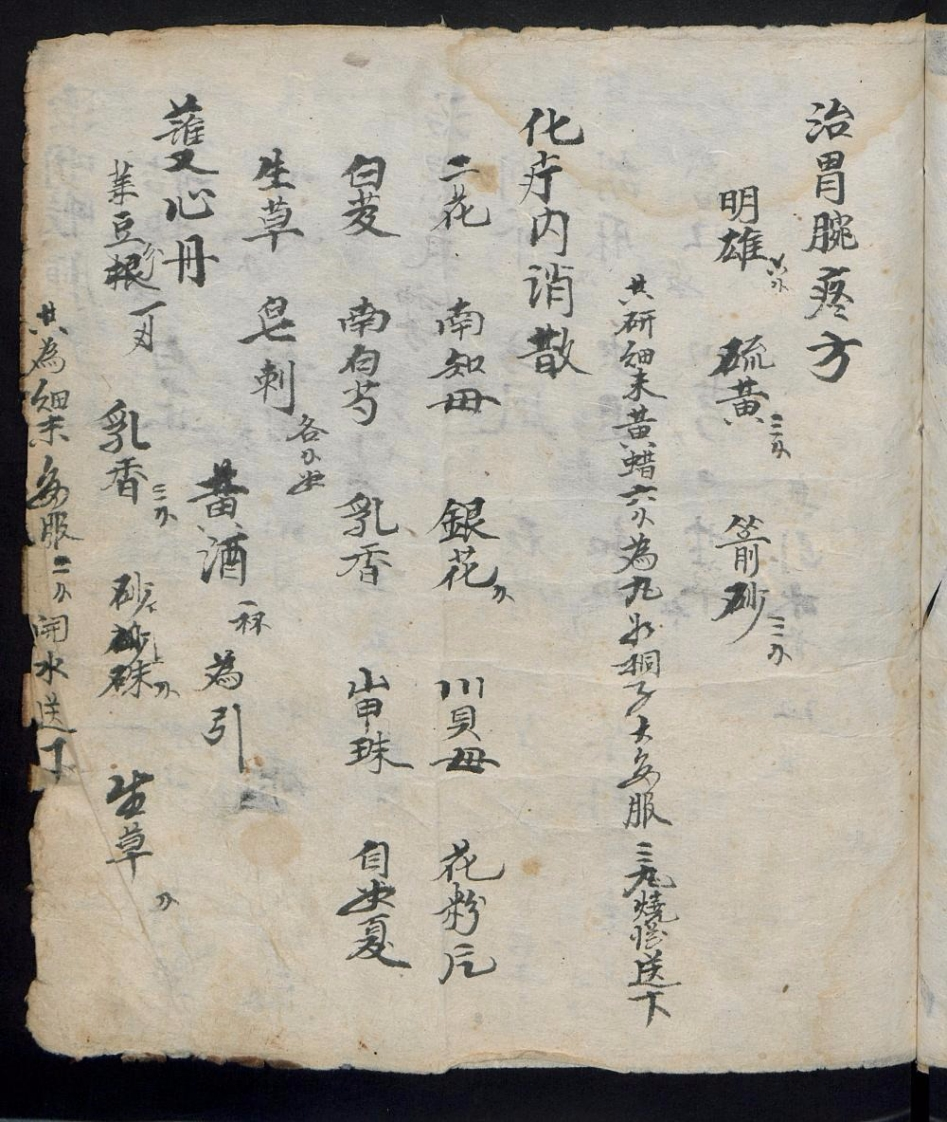 治胃腕疼方
明雄六分 硫黄三分 箭砂三分
共研細末黄蜡六分為丸如桐子大每服三丸燒酒送下
化疔内消散
二花 南知母 銀花 川貝母 花粉
白芨 南白芍 乳香 甲珠 半夏
生草 皂刺 各
黄酒一杯為引
護心丹
菉豆粉一刄 乳香三分 硃砂 生草
共為細末每服二分開水送下